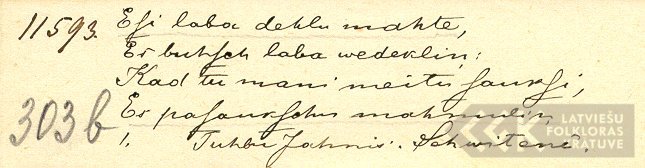 11593. Esi laba dehlu mahte,
Es buhsch laba wedekliņ;
Kad tu mani meitu sauksi,
303 b Es pasaukschu mahmuliņ.
1. Tuhbu Jahnis. Schwitenē.
LATVIEŠU
FOLKLORAS
KRATUVE